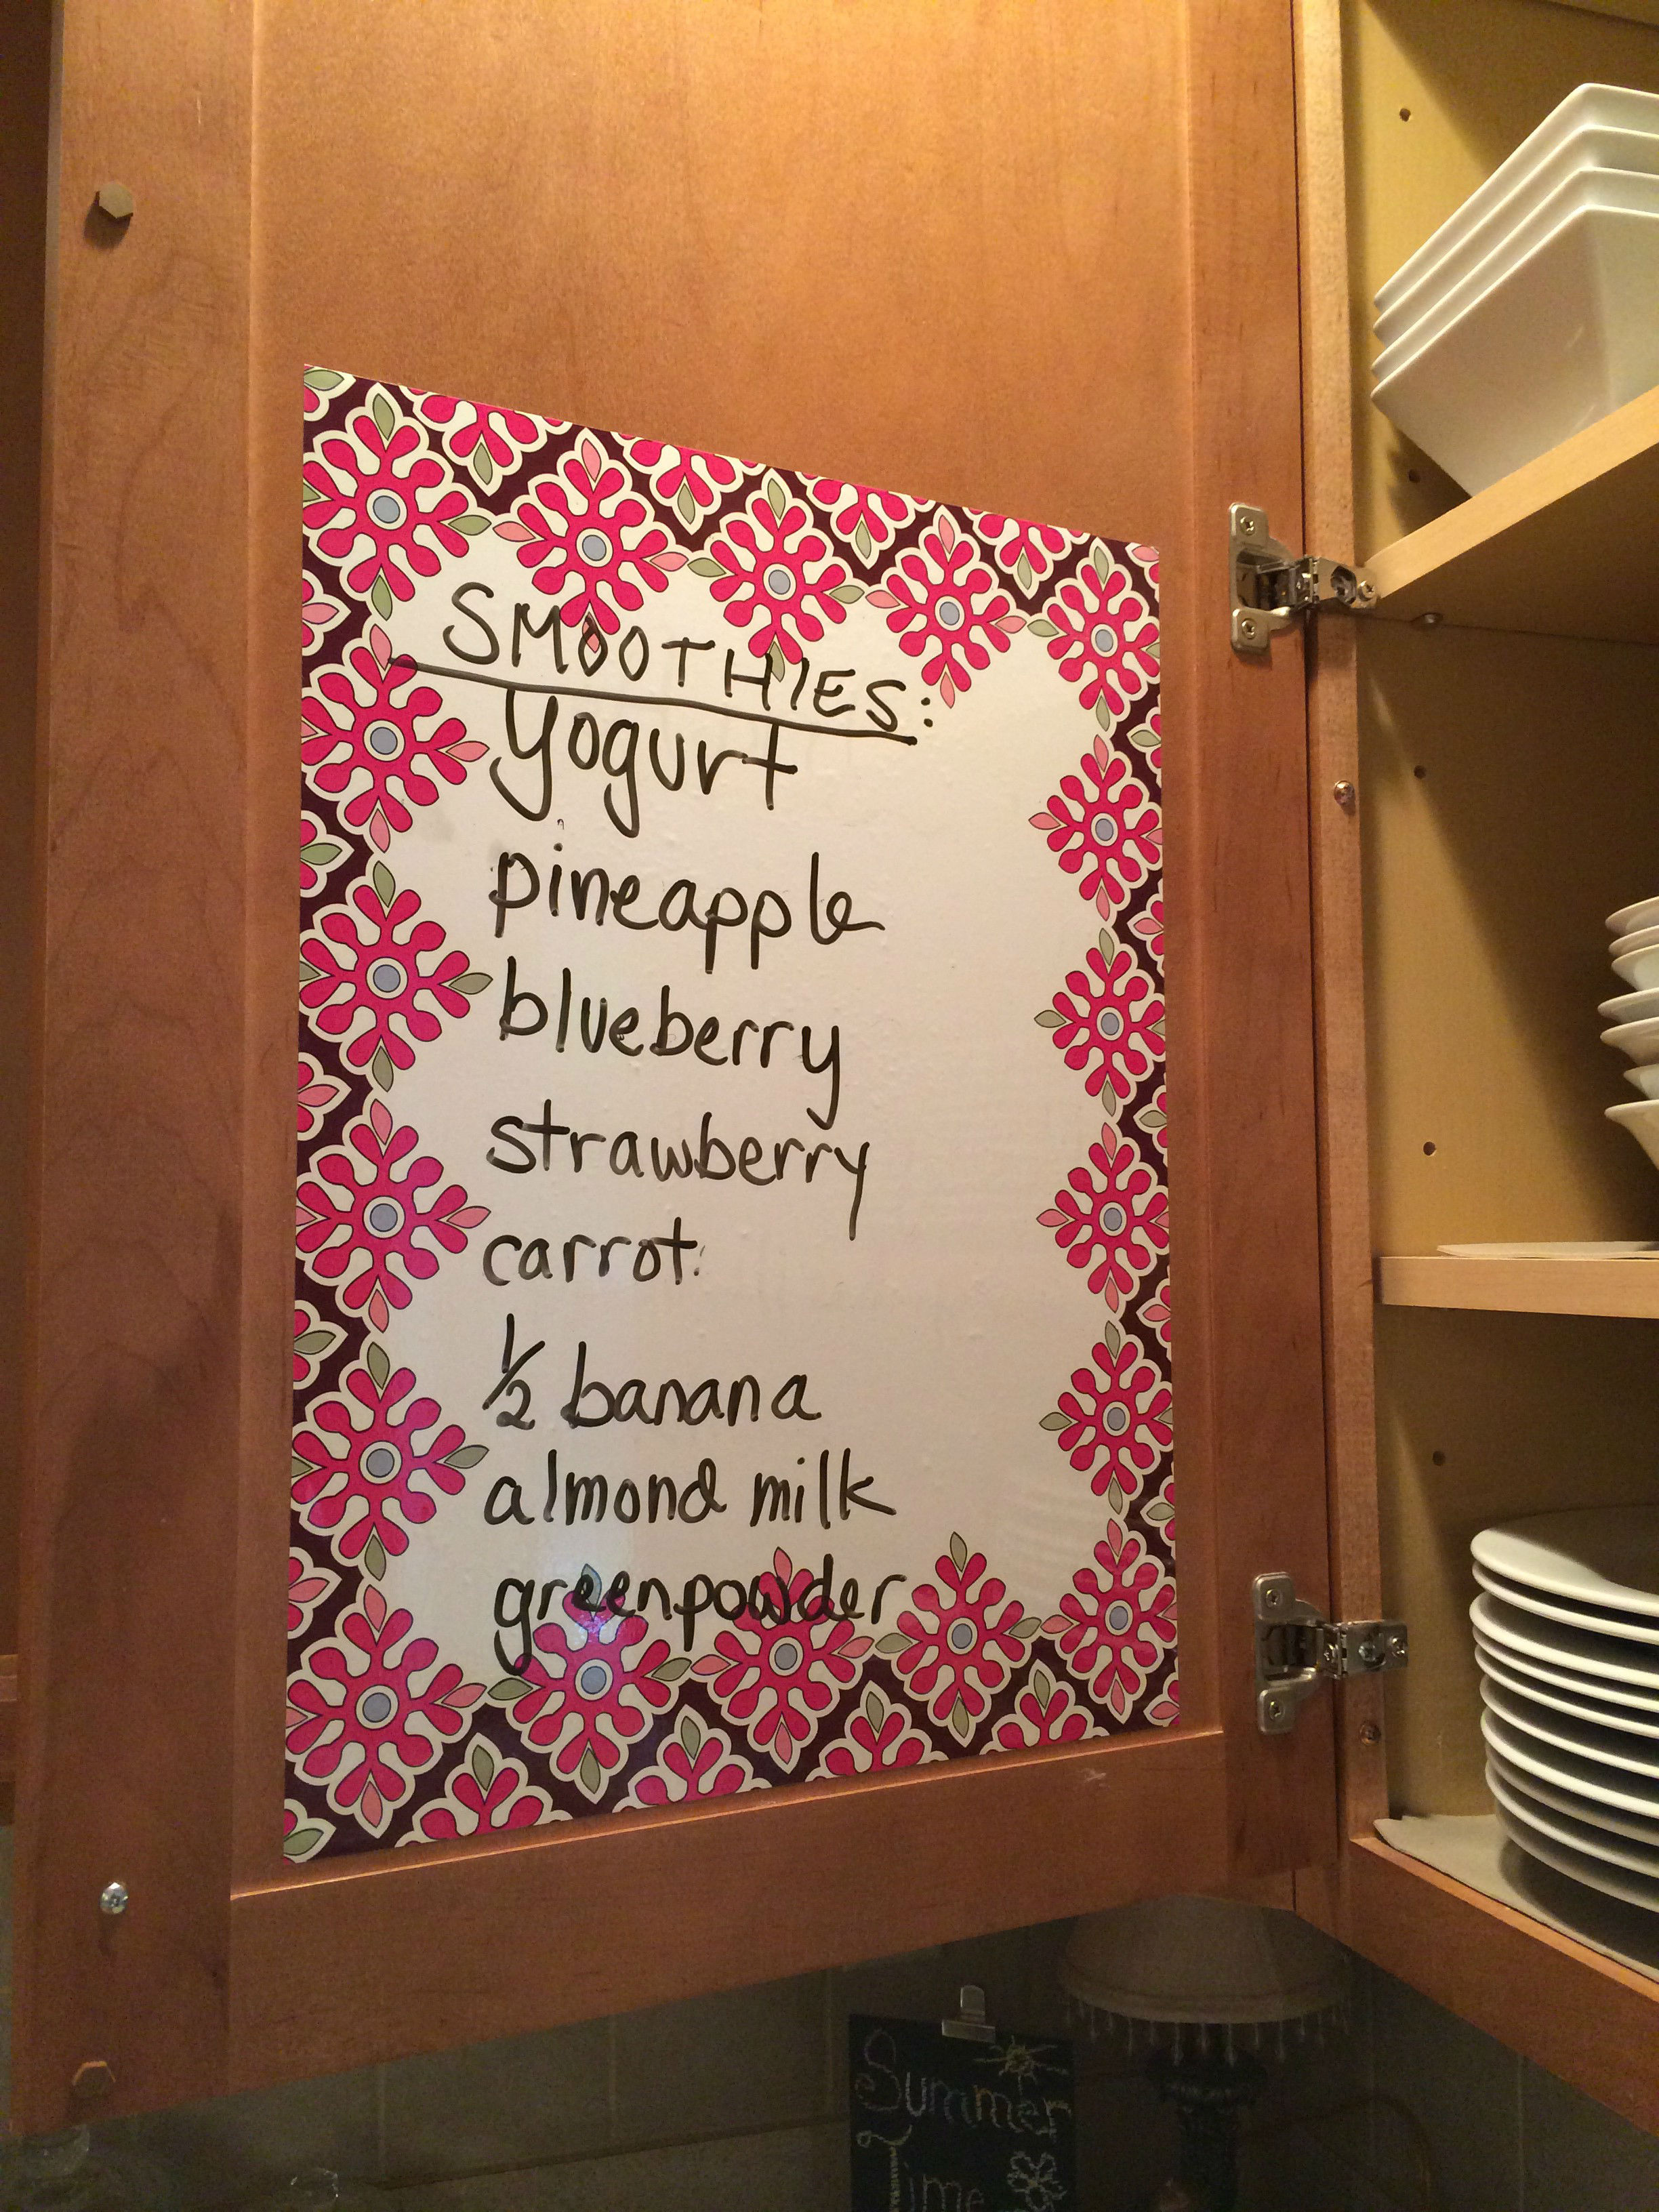 SMOOTHIES:
Yogurt
pineapple
blueberry
strawberry
carrot
½ banana
almond milk
greenpowder
Summer
Time